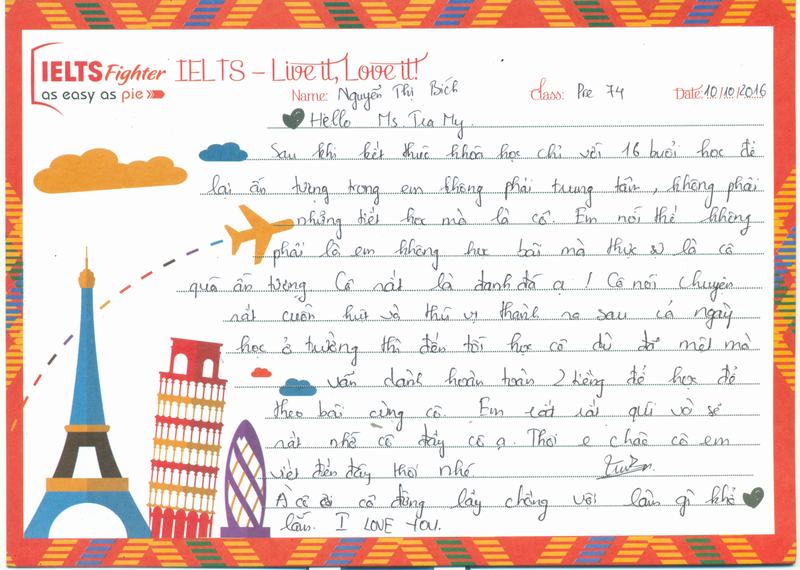 IELTS Fighter IELTS – Live it, Love it!
as easy as pie
Name: Nguyễn Thị Bích Class: Pre 74 Date: 10/10/2016
Hello Ms. Tra My
Sau khi kết thúc khóa học chỉ với 16 buổi học để
lại ấn tượng trong em không phải trung tâm, không phải
những tiết học mà là cô. Em nói thế không
phải là em không học bài mà thực sự là cô
quá ấn tượng. Cô rất là đanh đá ạ! Cô nói chuyện
rất cuốn hút và thú vị thành ra sau cả ngày
học ở trường thì đến tối học cô dù đã mệt mà
vẫn dành hoàn toàn 2 tiếng để học để
theo bài cùng cô. Em rất rất quí và sẽ
rất nhớ cô đấy cô ạ. Thôi e chào cô em
viết đến đây thôi nhé
À cô ơi cô đừng lấy chồng vội làm gì khổ
lắm. I LOVE YOU.